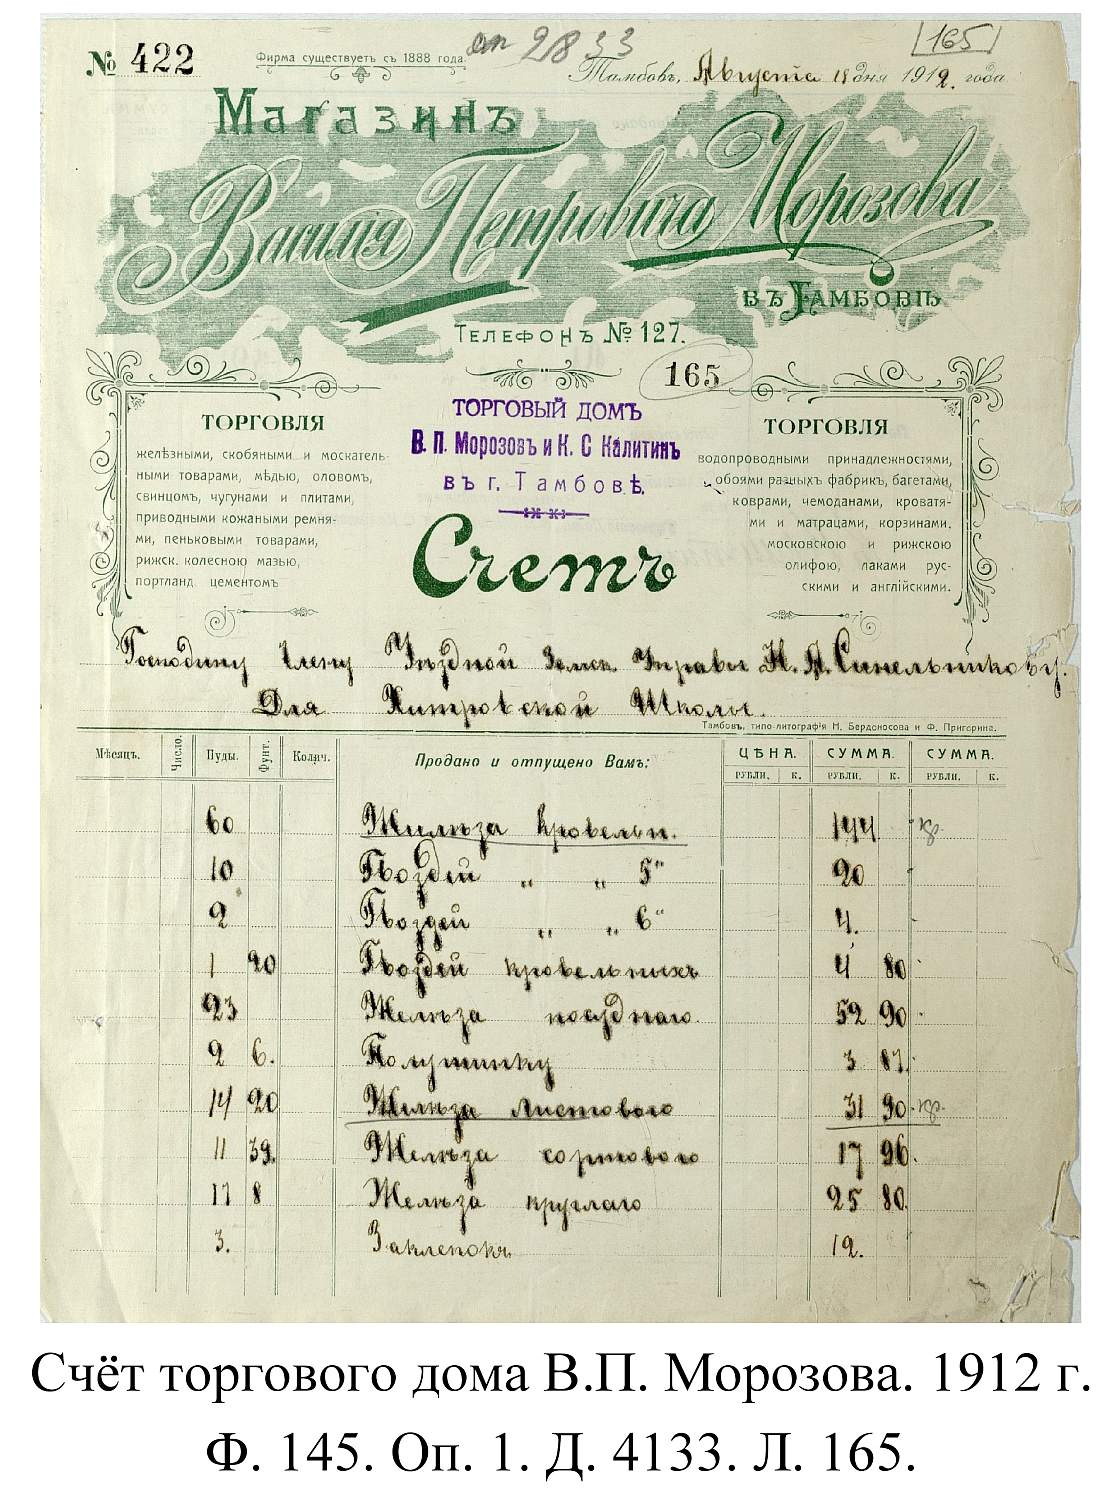 № 422
Фирма существуетъ съ 1888 года.
оп 2833
165
Тамбовъ, Августа 18 дня 1912. года
Магазинъ
Василія Петровича Морозова
въ Тамбовѣ
Телефонъ № 127.
165
ТОРГОВЛЯ
желѣзными, скобяными и москатель-
ными товарами, мѣдью, оловомъ,
свинцомъ, чугунами и плитами,
приводными кожаными ремня-
ми, пеньковыми товарами,
рижск. колесною мазью,
портланд. цементомъ
ТОРГОВЫЙ ДОМЪ
В. П. Морозовъ и К. С Калитинъ
въ г. Тамбовѣ.
ТОРГОВЛЯ
водопроводными принадлежностями,
обоями разныхъ фабрикъ, багетами,
коврами, чемоданами, кроватя-
ми и матрацами, корзинами.
московскою и рижскою
олифою, лаками рус-
скими и англійскими.
Счетъ
Господину Члену Уѣздной Земск. Управы Н. А. Синельникову.
Для Хитровской Школы.
Тамбовъ, типо-литографія Н. Бердоносова и Ф. Пригорина.
Мѣсяцъ. Число. Пуды. Фунт. Колич. Продано и отпущено Вамъ: ЦѢНА. СУММА. СУММА.
РУБЛИ. К. РУБЛИ. К. РУБЛИ. К.
60 Желѣза кровельн. 144
10 Гвоздей „ „ 5" 20
2 Гвоздей „ „ 6" 4.
1 20 Гвоздей кровельныхъ 4 80
23 Желѣза 52 90
2 6. Полушинку 3 87.
14 20 Желѣза листового 31 90
11 39. Желѣза сортового 17 96
17 8 Желѣза круглаго 25 80.
3. Заклепокъ 12.
Счёт торгового дома В.П. Морозова. 1912 г.
Ф. 145. Оп. 1. Д. 4133. Л. 165.